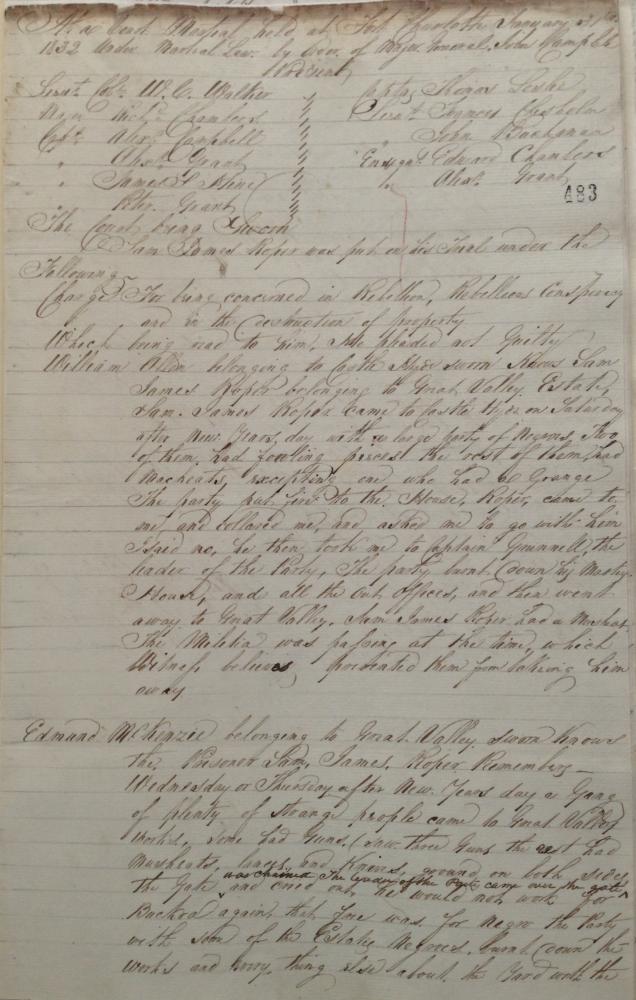 At a Court Martial held at Fort Charlotte January 21st
1832 Under Martial Law by order of Major General John Campbell
Present
Lieut Colo W. C. Walker Captn Thomas Leslie
Majr Richd Chambers Lieut Chisholm
Captn Alexr Campbell " John Buchanan
" Alexr Grant Ensign Edward Chambers
" James L Hine " Alexr Grant
" Peter Grant
483
The Court being Sworn
Sam James Roper was put on his Trial under the
Following
Charge For being concerned in Rebellion, Rebellious Conspiracy
and in the destruction of property
Which being read to him, He pleaded not Guilty
William Allen belonging to Castle Hyde sworn Knows Sam
James Roper belonging to Great Valley Estate,
Sam James Roper came to Castle Hyde on Saturday
after New Years day with a large party of Negroes, Two
of them had fowling pieces the rest of them had
Macheats, excepting one who had a
The party put fire to the House, Roper, came to
me and collared me, and asked me to go with him
I said no, he then took me to Captain Gummell, the
leader of the Party, The party burnt down my Masters
House, and all the out offices, and then went
away to Great Valley. Sam James Roper had a Macheat
The Militia was passing at the time, which
Witness believes prevented them from taking him
away
Edmund McKenzie belonging to Great Valley sworn Knows
the Prisoner Sam James Roper Remembers
Wednesday or Thursday after New Years day a Gang
of plenty of strange people came to Great Valley
works, some had Guns (I saw three Guns the rest had
Macheats, lances, and Knives, ground on both sides
the Gate was chained The leader of the Party came over the gate
and cried out, he would not work for
Buckra again, that fire was for Negro the Party
with some of the Estates Negroes burnt down the
works and every thing else about the Yard with the